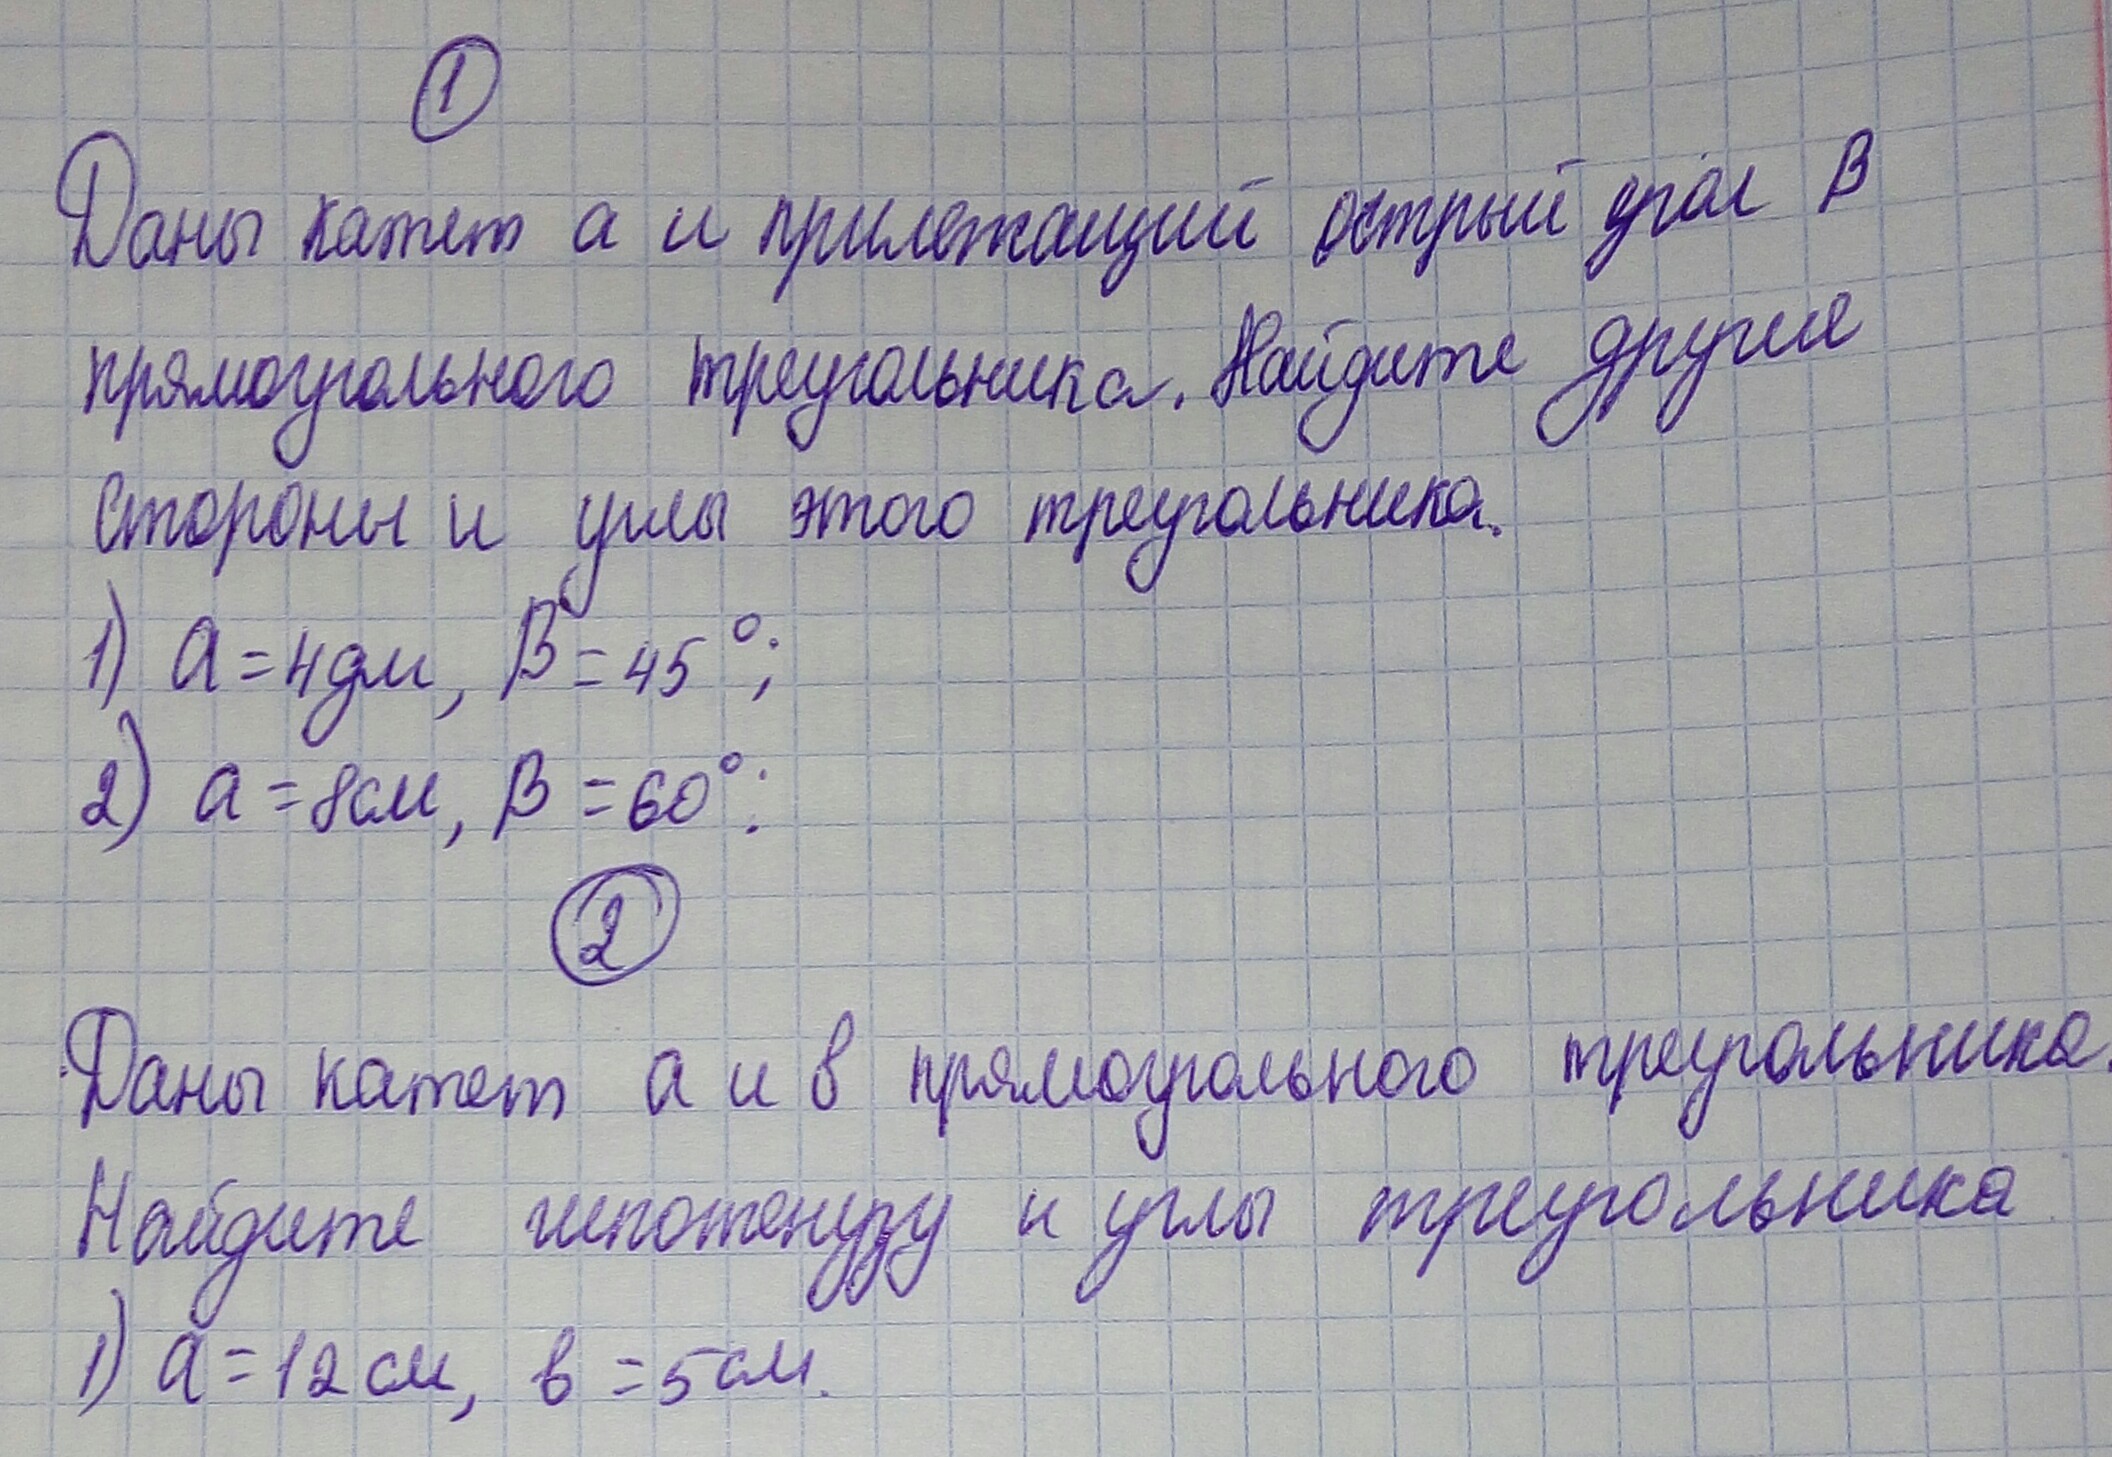 1
Даны катет а и прилежащий острый угол β
прямоугольного треугольника. Найдите другие
стороны и углы этого треугольника.
1) а = 4дм, β = 45°;
2) а = 8см, β = 60°:
2
Даны катет а и в прямоугольного треугольника.
Найдите гипотенузу и углы треугольника
1) а = 12 см, в = 5 см.